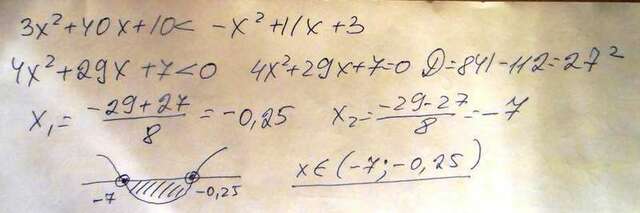 3x²+40x+10< -x²+11x+3
4x²+29x+7<0 4x²+29x+7=0 D=841-112=27²
x₁= \frac{-29+27}{8} = -0,25 x₂= \frac{-29-27}{8} = -7
-7 -0,25 x∈(-7;-0,25)